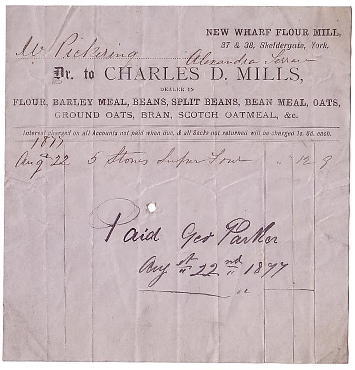 NEW WHARF FLOUR MILL,
37 & 38, Skeldergate, York.
Mr Pickering
Alexandra Terrace
Dr. to CHARLES D. MILLS,
DEALER IN
FLOUR, BARLEY MEAL, BEANS, SPLIT BEANS, BEAN MEAL, OATS,
GROUND OATS, BRAN, SCOTCH OATMEAL, &c.
Interest charged on all Accounts not paid when due, & all Sacks not returned will be charged 1s. 6d. each.
1877
Augt 22 5 Stones Super Flour " 12 9
Paid Geo Parker
Augst 22nd 1877